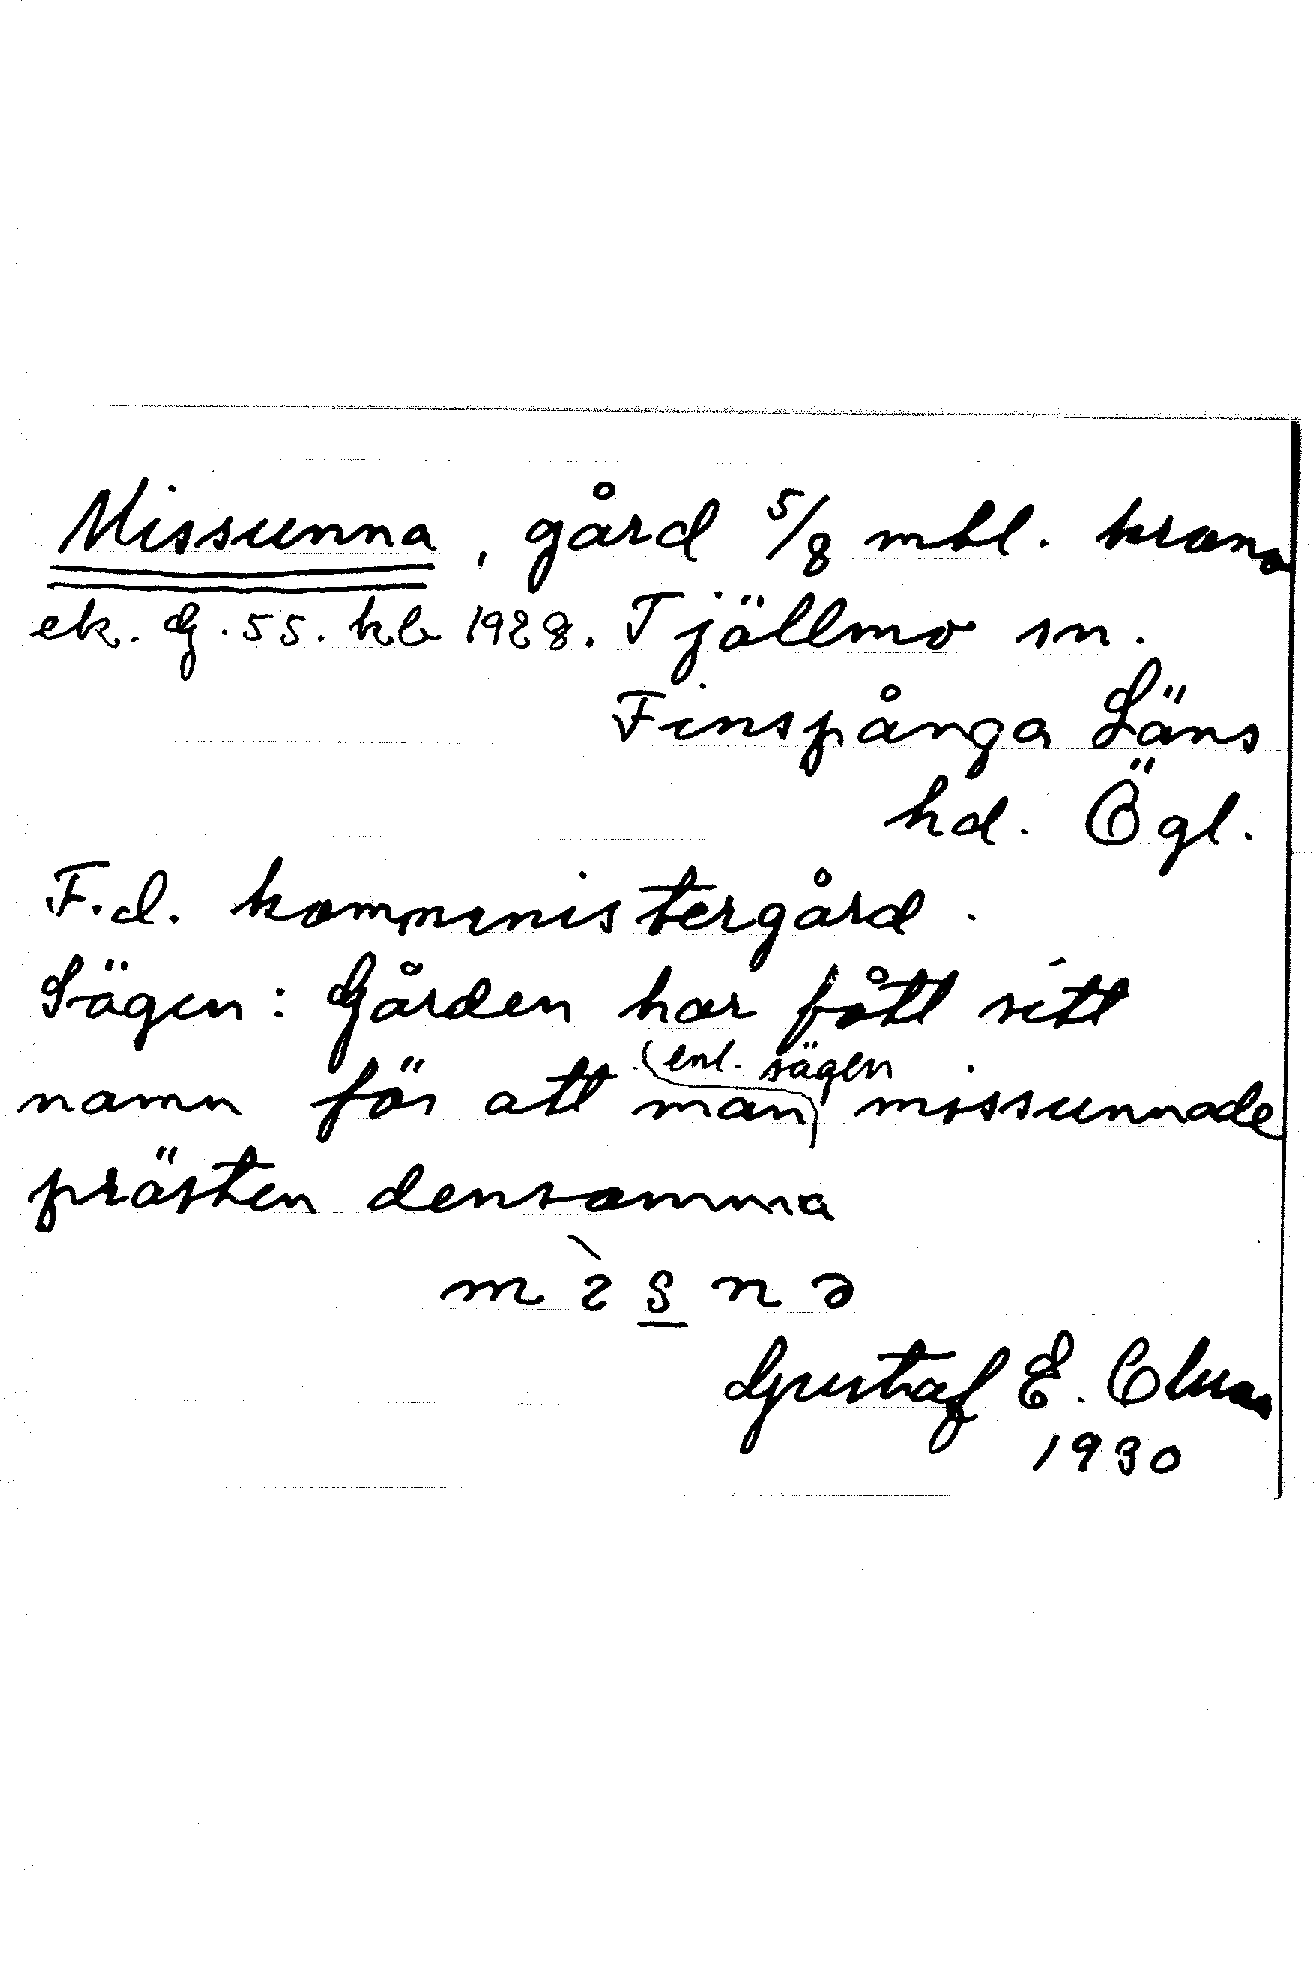 Missunna, gård 5/8 mtl. krono
ek. G. 55. kb 1928. Tjällmo sn.
Finspånga Läns
hd. Ögl.
F.d. komministergård.
Sägen: Gården har fått sitt
enl. sägen
namn för att man missunnade
prästen densamma
Gustaf E.
1930